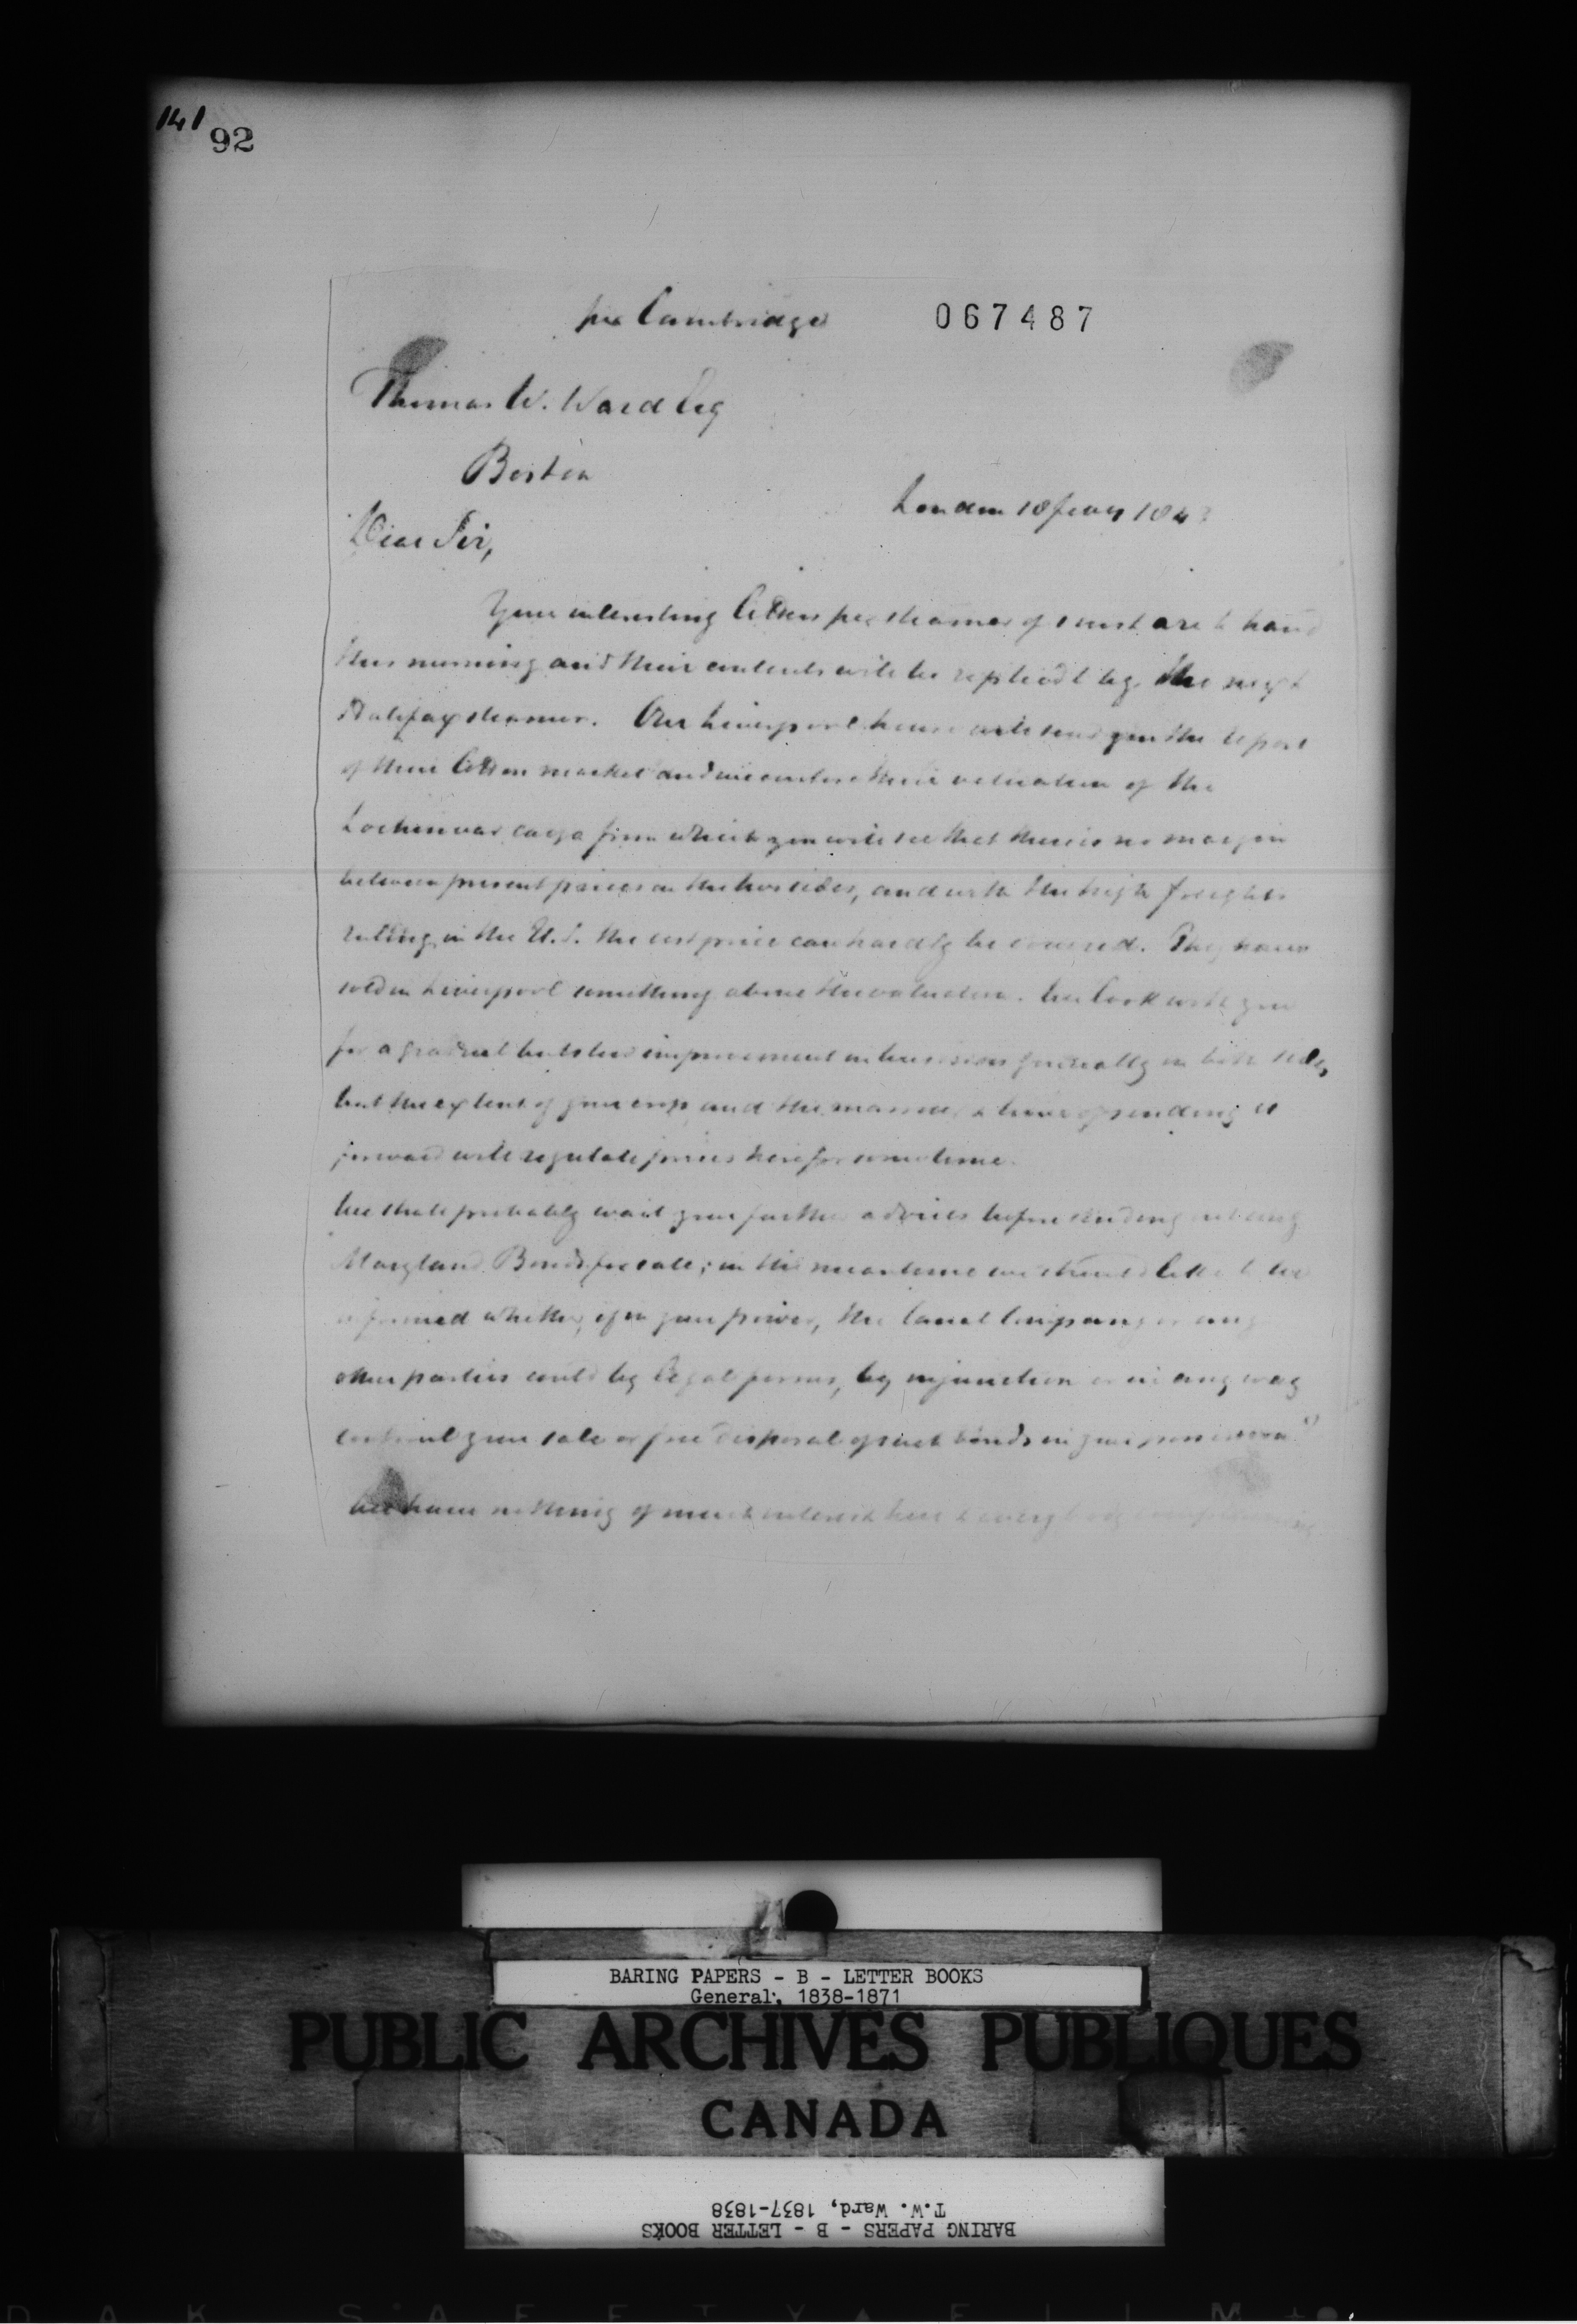 141
92
per Cambridge 067487
Thomas W. Ward Esq
Boston
London 18 Jany 1843
Dear Sir,
Your interesting letters per steamer of 1 inst are to hand
this morning and their contents will be replied to by the next
Halifax steamer. Our Liverpool house will send you the report
of their Cotton market and we enclose their valuation of the
Lochinvar cargo from which you will see that there is no margin
between present prices on the two sides, and with the high freights
ruling in the U.S. the cost price can hardly be covered. They have
sold in Liverpool something above the valuation. We look with you
for a gradual but slow improvement in business generally on both sides,
but the extent of your crop and the manner & time of sending it
forward will regulate prices here for some time.
We shall probably wait your further advices before sending out any
Maryland Bonds for sale; in the meantime we should like to be
informed whether, if in your power, the Canal Company or any
other parties could by legal forms, by injunction or in any way
control your sale or free disposal of such bonds in your possession
We have nothing of much interest here &
BARING PAPERS - B - LETTER BOOKS
General, 1838-1871
PUBLIC ARCHIVES PUBLIQUES
CANADA
BARING PAPERS - B - LETTER BOOKS
T.W. Ward, 1837-1838